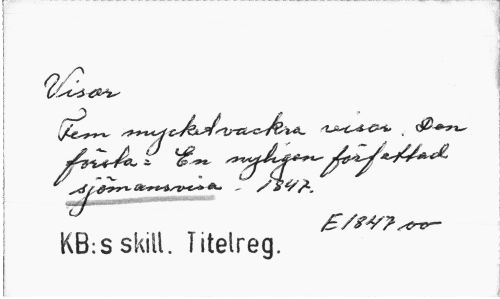 Visor
Fem mycket vackra visor. Den
första: En nyligen författad
sjömansvisa. 1847.
E 1847 vv
KB:s skill. Titelreg.